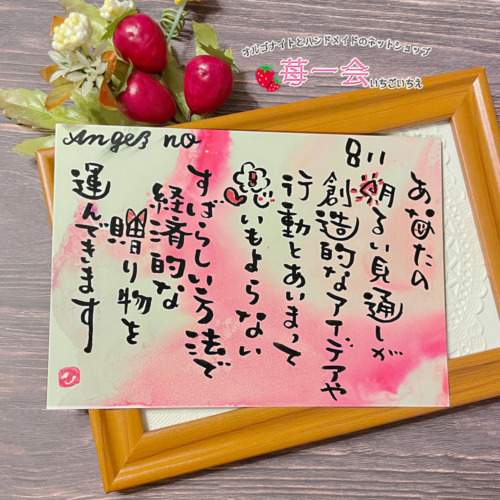 オルゴナイトとハンドメイドのネットショップ
苺一会
いちごいちえ
Angel no
811
あなたの
明るい見通しが
創造的なアイデアや
行動とあいまって
思いもよらない
すばらしい方法で
経済的な
贈り物を
運んできます